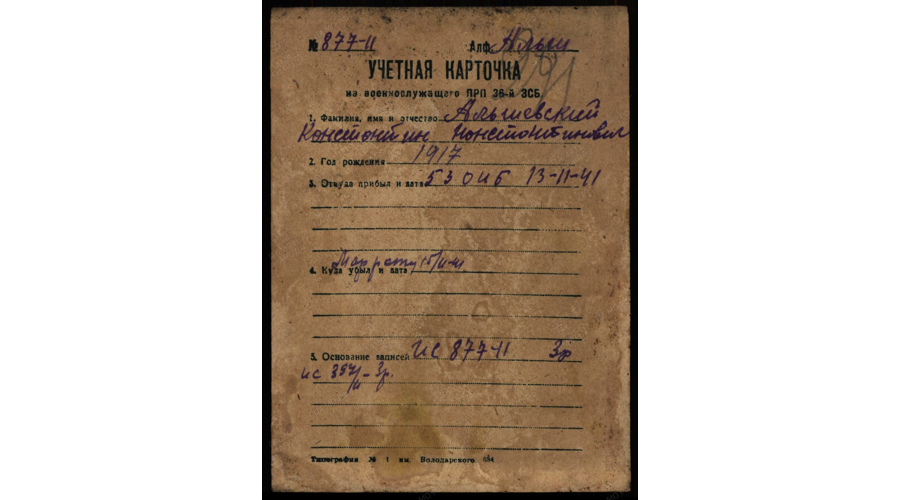 № 877-11 Алф. Альш
УЧЕТНАЯ КАРТОЧКА
на военнослужащего ПРП 36-й ЗСБ.
1. Фамилия, имя и отчество Альшевский
Константин Константинович
2. Год рождения 1917
3. Откуда прибыл и дата 53 ОИБ 13-11-41
4. Куда убыл и дата
5. Основание записей ИС 877-11 Зр
ис
Типография № 1 им. Володарского